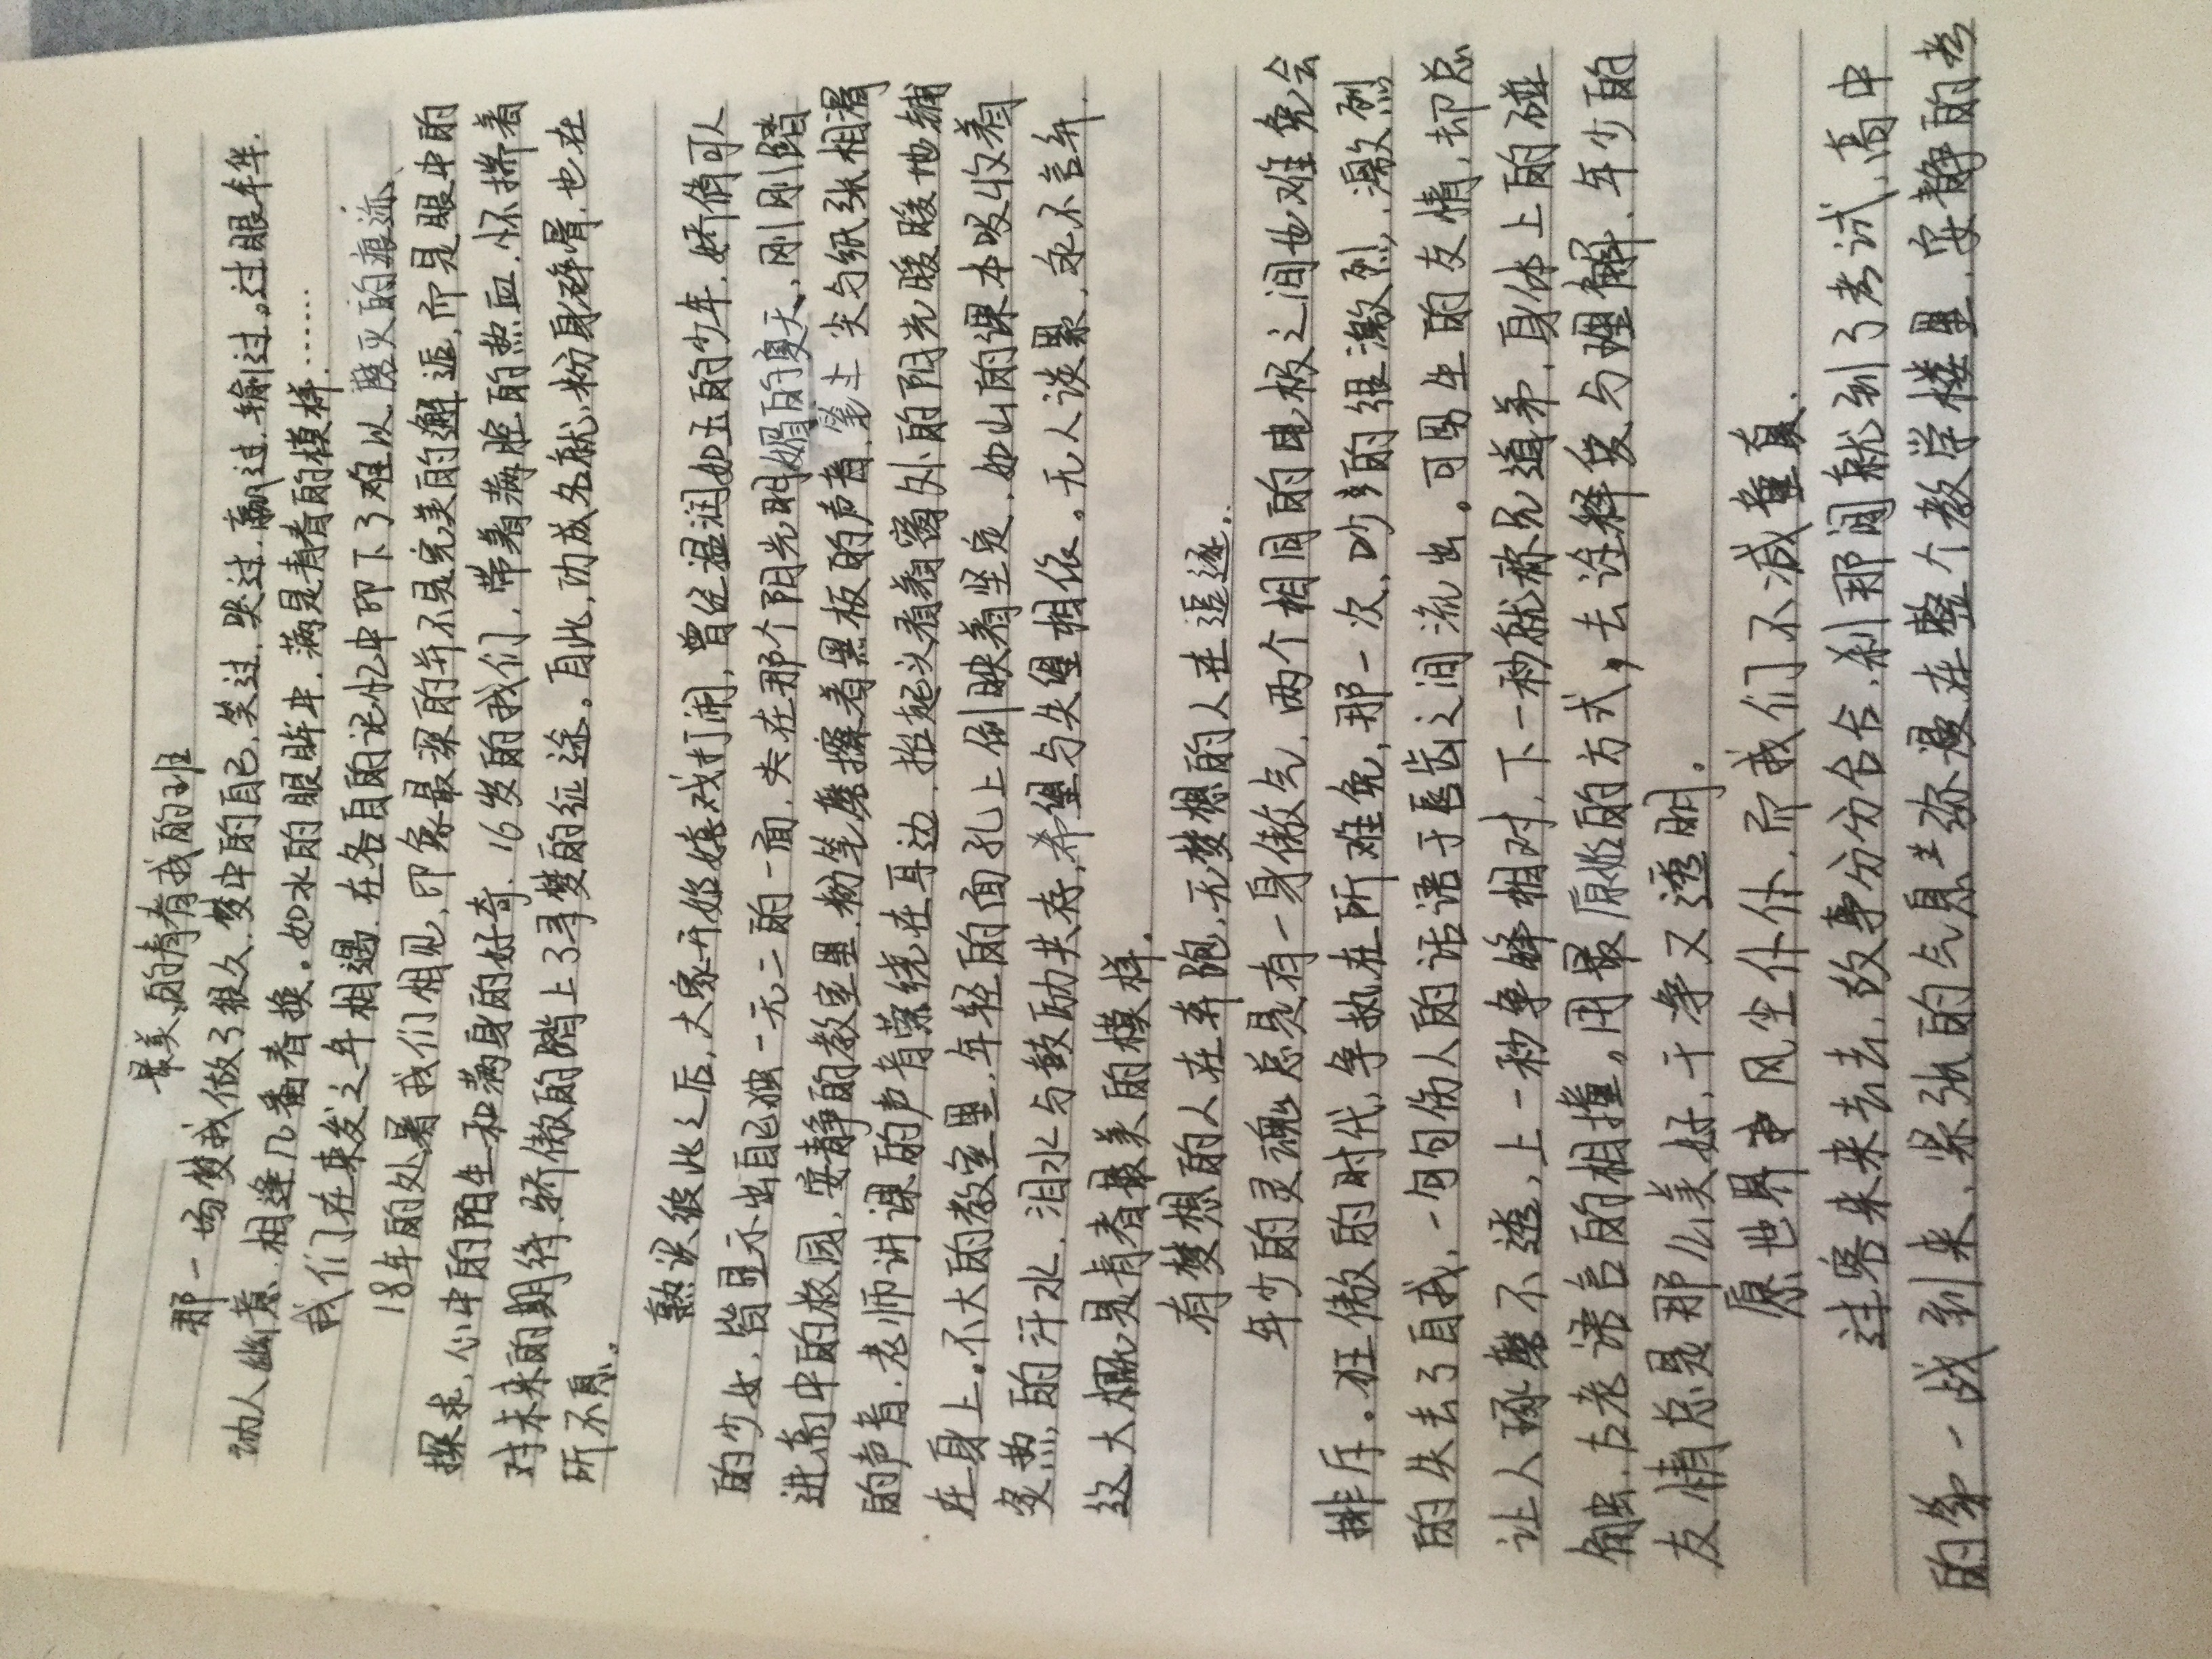 最美的青春我的班
那一场梦我做了很久.梦中的自己,笑过.哭过.赢过.输过。过眼年华.
动人幽景.相逢几番春换。如水的眼眸中.满是青春的模样………
我们在来发之年相遇.在各自的记忆中印下了难以磨灭的痕迹、
18年的处暑我们相见,印象最深的并不是完美的邂逅,而是眼中的
探求,心中的陌生和满身的好奇.16岁的我们,带着满腔的热血.怀揣着
对未来的期待.骄傲的踏上了寻梦的征途。自此,功成名就,粉身碎骨.也在
所不惜。
熟识彼此之后,大家开始嬉戏打闹,曾经温润如玉的少年.娇俏可人
的少女.皆显示出自己独一无二的一面.夹在那个阳光明媚的夏天,刚刚踏
进高中的校园,安静的教室里.粉笔磨擦着黑板的声音.笔尖与纸张相遇
的声音.老师讲课的声音萦绕在耳边.抬起头看着窗外的阳光暖暖地铺
在身上。不大的教室里.年轻的面孔上倒映着坚定.如山的课本吸收着
炙热的汗水.泪水与鼓励共存,希望与失望相依。无人谈累.永不言弃.
这大概是青春最美的模样.
有梦想的人在奔跑,无梦想的人在追逐..
年少的灵魂总是有一身傲气.两个相同的电极之间也难免会
排斥。狂傲的时代,争执在所难免,那一次,吵的很激烈,激烈
的失去了自我.一句句伤人的话语于唇齿之间流出。可男生的友情,却总
让人琢磨不透,上一秒争锋相对,下一秒就称兄道弟,身体上的碰
触.古老语言的相撞。用最原始的方式,去诠释爱与理解.年少的
友情总是那么美好,干净又透明。
愿世界中风尘仆仆.而我们不减童真.
过客来来去去,故事分分合合.刹那间就到了考试,高中
的第一战到来,紧张的气息弥漫在整个教学楼里.安静的考